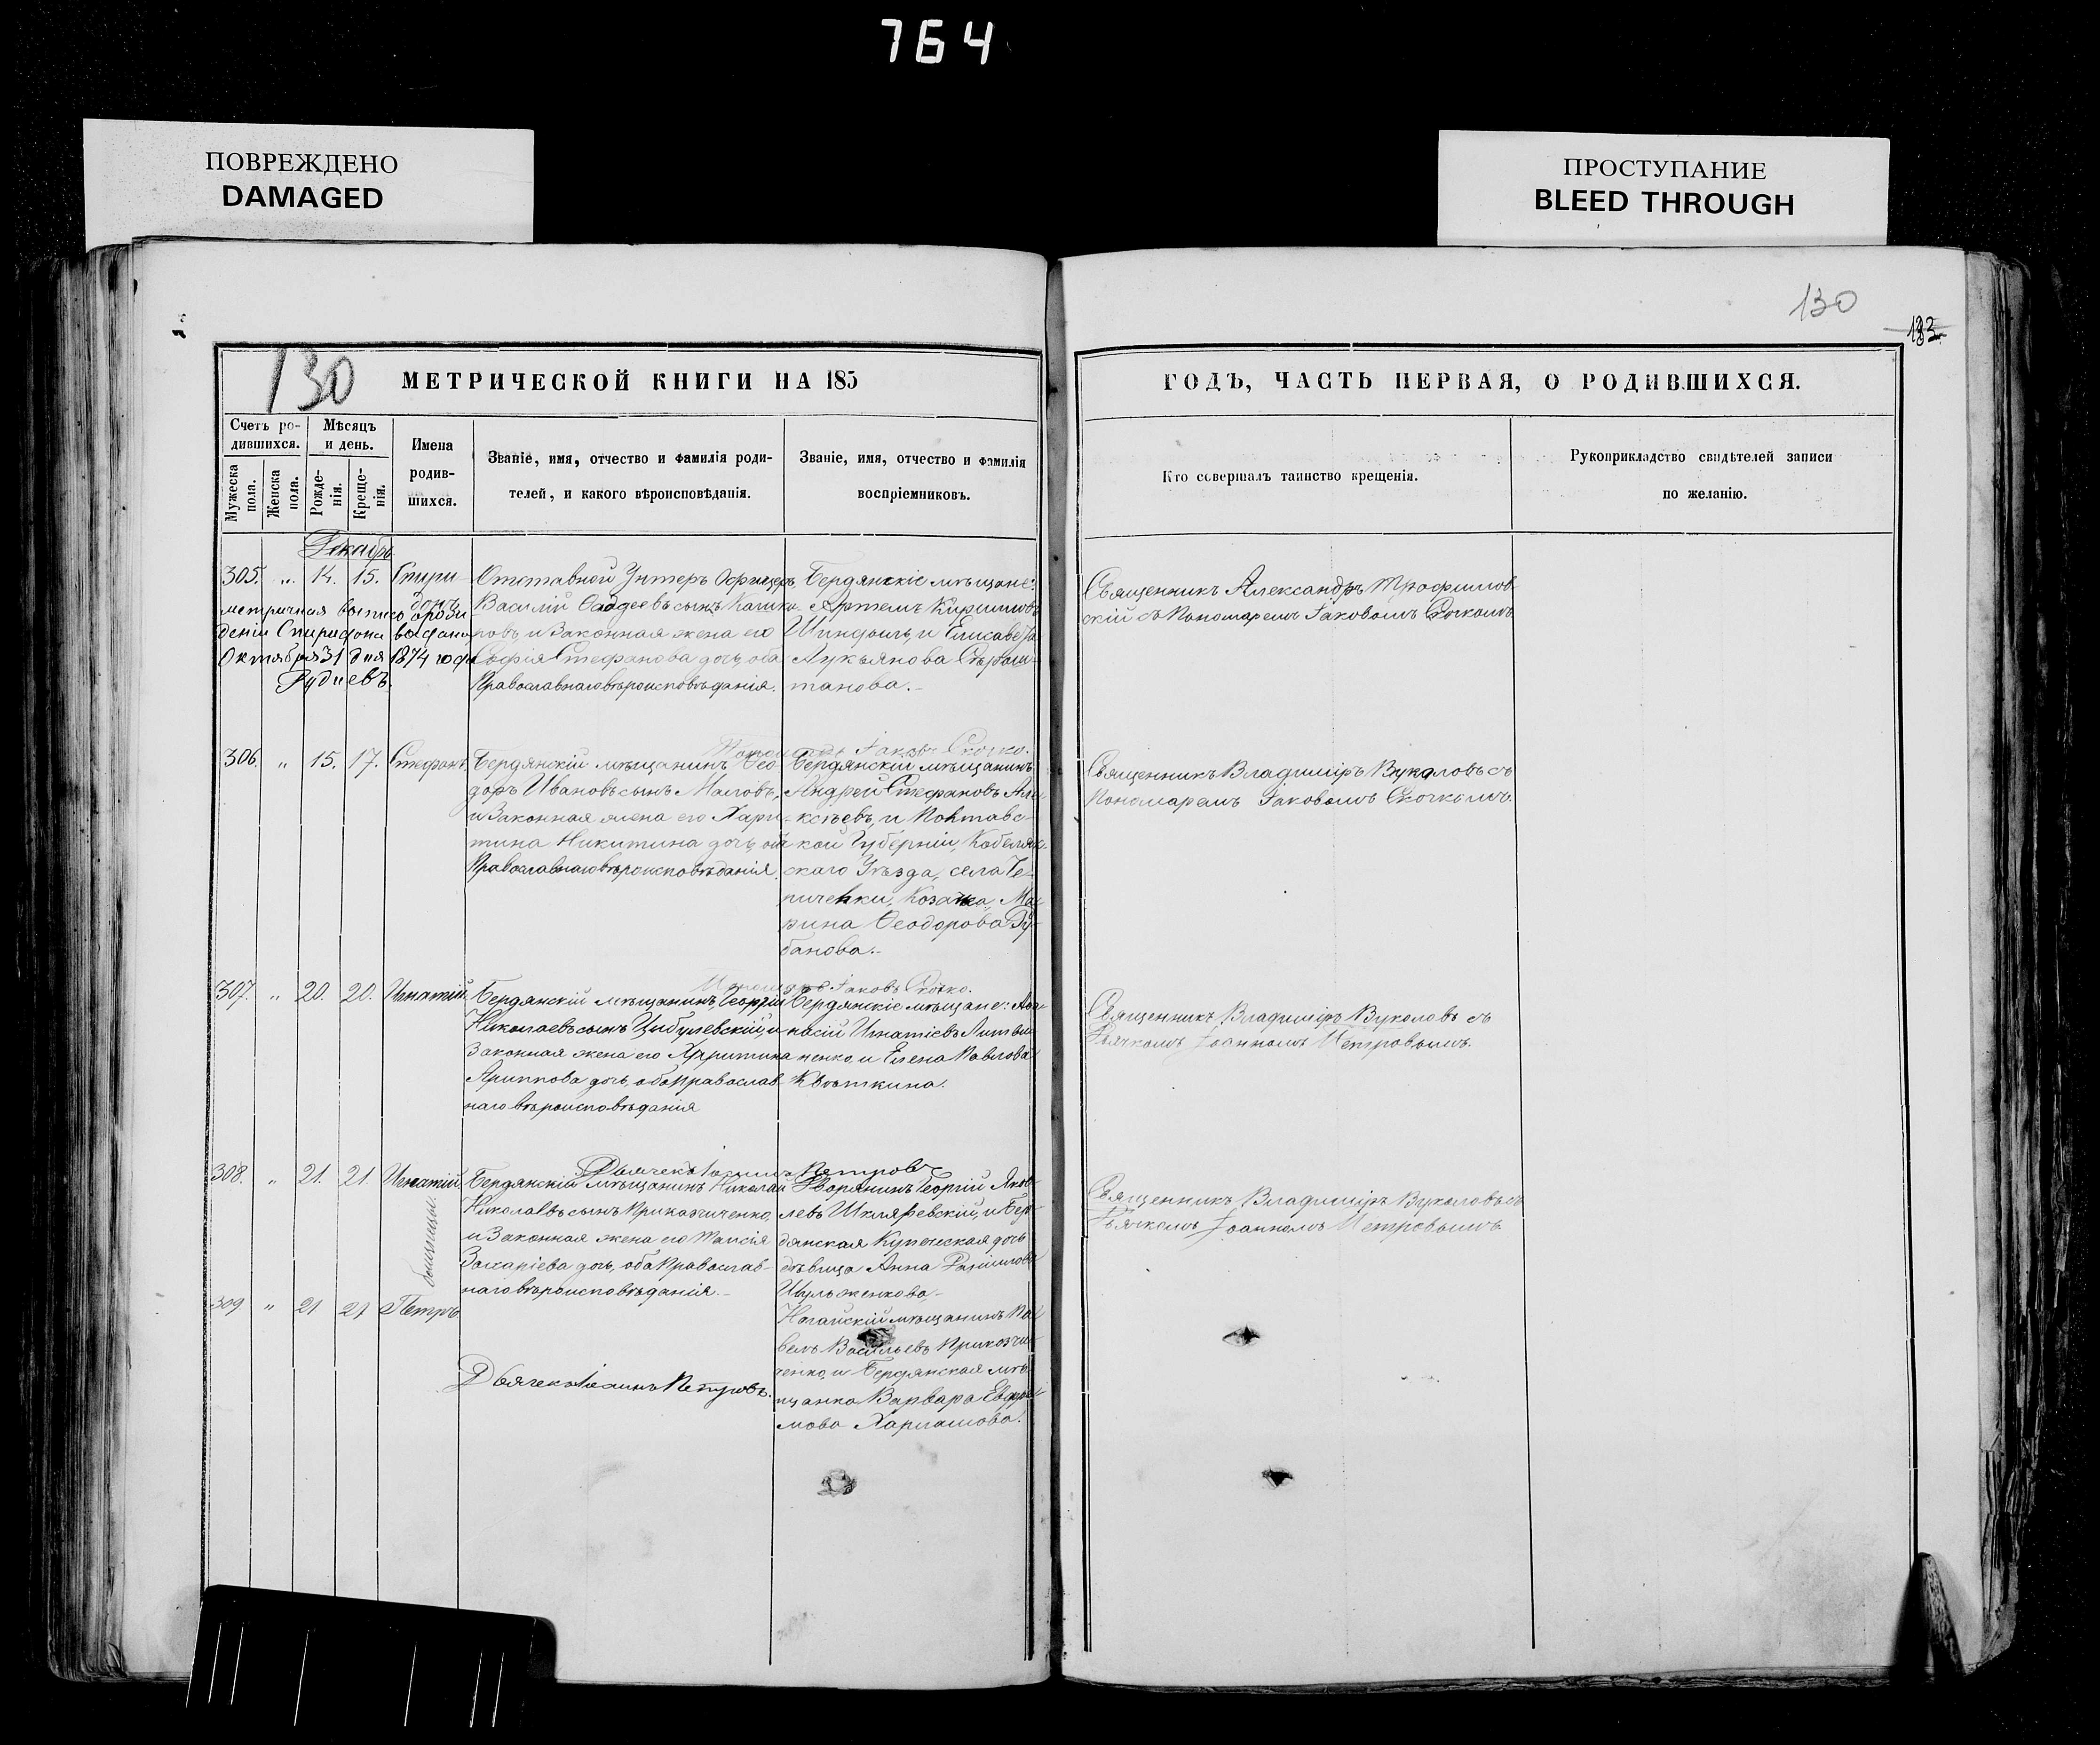 764
ПОВРЕЖДЕНО
DAMAGED
ПРОСТУПАНИЕ
BLEED THROUGH
130
МЕТРИЧЕСКОЙ КНИГИ НА 185
Счетъ ро-
дившихся.
Мужеска
пола.
Женска
пола.
Мѣсяцъ
и день.
Рожде-
нія.
Креще-
нія.
Имена
родив-
шихся.
Званіе, имя, отчество и фамилія роди-
телей, и какого вѣроисповѣданія.
Званіе, имя, отчество и фамилія
воспріемниковъ.
Декабрь
305. „ 14. 15. Спири-
донъ
метричная выпись о рож-
деніи Спиридона выдана
Октября 31 дня 1874 года
Отставной Унтеръ Офицеръ
Василій Фаддеевъ сынъ
и Законная жена его
Софія Стефанова дочь, оба
Православнаго вѣроисповѣданія.
Бердянскіе мѣщане:
Артемъ Кирилловъ
и Елисавета
Лукьянова
танова.
Іаковъ Скочко.
306. „ 15. 17. Стефанъ.
Бердянскій мѣщанинъ Ѳео-
доръ Ивановъ сынъ Масловъ,
и Законная жена его Хари-
тина Никитина дочь, оба
Православнаго вѣроисповѣданія.
Бердянскій мѣщанинъ
Андрей Стефановъ Але-
ксѣевъ, и Полтавс-
кой Губерніи, Кобеляк-
скаго Уѣзда, села
Козачка, Ма-
рина Ѳеодорова Ру-
банова.
Іаковъ Скочко.
307. „ 20. 20. Игнатій.
Бердянскій мѣщанинъ, Георгій
Николаевъ сынъ Цибулевскій, и
Законная жена его Харитина
дочь, оба Православ-
наго вѣроисповѣданія
Бердянскіе мѣщане: Аѳа-
насій Игнатіевъ Литви-
ненко, и Елена Павлова
Квѣткина.
Дьячекъ Іоаннъ Петровъ
308. „ 21. 21. Игнатій.
близнецы.
Бердянскій мѣщанинъ Николай
Николаевъ сынъ Приказчиченко,
и Законная жена его Таисія
Захаріева дочь, оба Православ-
наго вѣроисповѣданія.
Дворянинъ Георгій Яков-
левъ Шкляревскій, и Бер-
дянская Купеческая дочь
дѣвица Анна
Шульженкова
309 „ 21 21 Петръ
Ногайскій мѣщанинъ Па-
велъ Васильевъ Приказчи-
ченко, и Бердянская мѣ-
щанка Варвара Евфи-
мова Харламова.
Дьячекъ Іоаннъ Петровъ.
130
ГОДЪ, ЧАСТЬ ПЕРВАЯ, О РОДИВШИХСЯ.
Кто совершалъ таинство крещенія.
Рукоприкладство свидѣтелей записи
по желанію.
Священникъ Александръ Трофимов-
скій съ Пономаремъ Іаковомъ Скочкомъ
Священникъ Владиміръ Вуколовъ съ
Пономаремъ Іаковомъ Скочкомъ.
Священникъ Владиміръ Вуколовъ съ
Дьячкомъ Іоанномъ Петровымъ.
Священникъ Владиміръ Вуколовъ съ
Дьячкомъ Іоанномъ Петровымъ